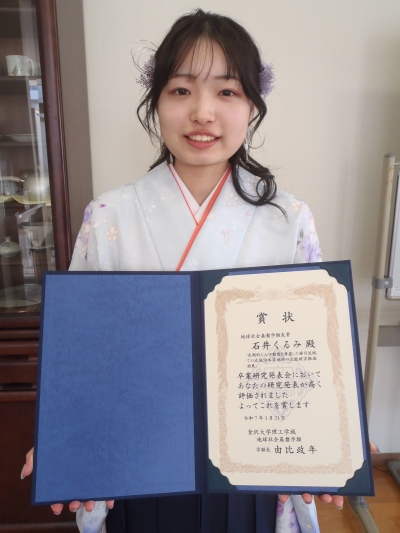 賞状
地球社会基盤学類長賞
石井くるみ 殿
卒業研究発表会において
あなたの研究発表が高く
評価されました
よってこれを賞します
令和7年3月21日
金沢大学理工学域
地球社会基盤学類
学類長 由比政年